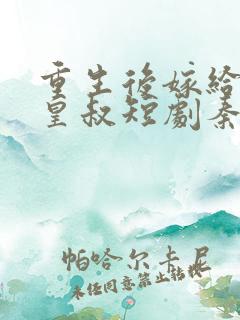 重生後嫁給
皇叔短劇秦
帕哈尔卡尼
未经同意禁止转载